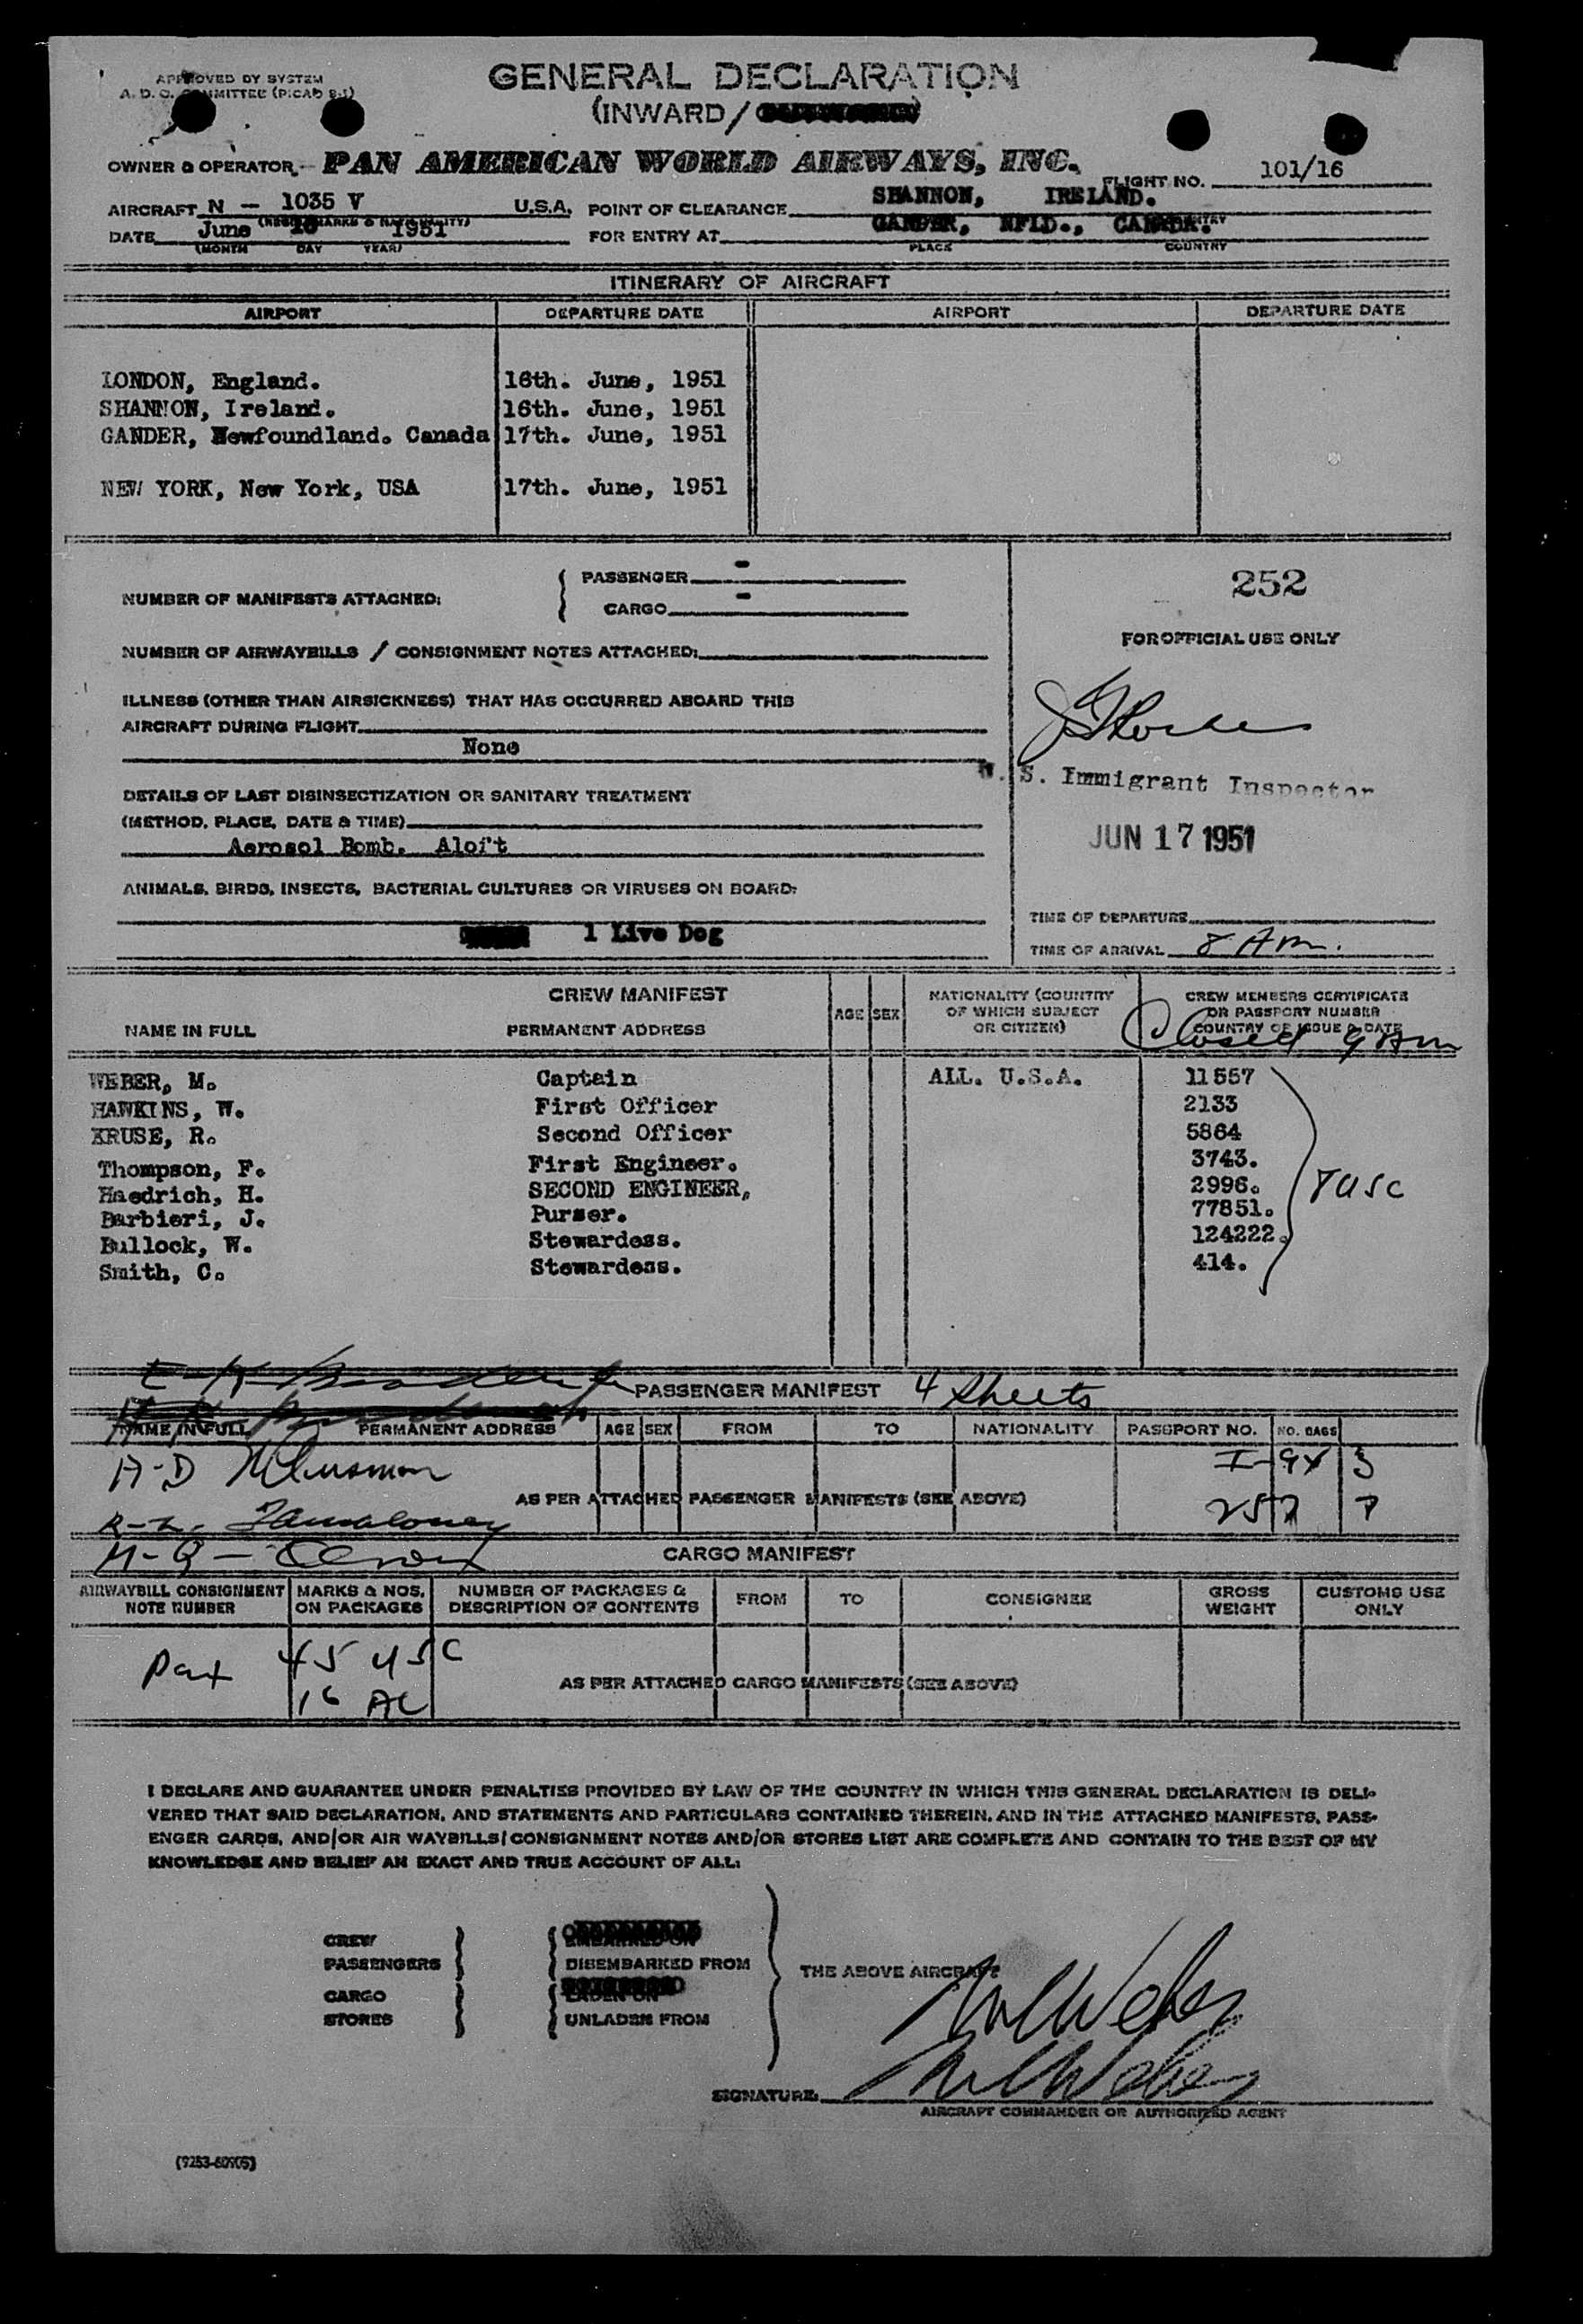 APPROVED BY SYSTEM
A. D. C. COMMITTEE (PICAO 9-1)
GENERAL DECLARATION
(INWARD/
OWNER & OPERATOR - PAN AMERICAN WORLD AIRWAYS, INC. FLIGHT NO. 101/16
AIRCRAFT N - 1035 V U.S.A. POINT OF CLEARANCE SHANNON, IRELAND.
(REGD. MARKS & NATIONALITY)
DATE June 16 1951 FOR ENTRY AT GANDER, NFLD., CANADA.
(MONTH DAY YEAR) PLACE COUNTRY
ITINERARY OF AIRCRAFT
AIRPORT DEPARTURE DATE AIRPORT DEPARTURE DATE
LONDON, England. 16th. June, 1951
SHANNON, Ireland. 16th. June, 1951
GANDER, Newfoundland. Canada 17th. June, 1951
NEW YORK, New York, USA 17th. June, 1951
NUMBER OF MANIFESTS ATTACHED: { PASSENGER -
CARGO -
252
FOR OFFICIAL USE ONLY
NUMBER OF AIRWAYBILLS / CONSIGNMENT NOTES ATTACHED:
ILLNESS (OTHER THAN AIRSICKNESS) THAT HAS OCCURRED ABOARD THIS
AIRCRAFT DURING FLIGHT
None
U. S. Immigrant Inspector
DETAILS OF LAST DISINSECTIZATION OR SANITARY TREATMENT
(METHOD, PLACE, DATE & TIME)
Aerosol Bomb. Aloft
JUN 17 1951
ANIMALS, BIRDS, INSECTS, BACTERIAL CULTURES OR VIRUSES ON BOARD:
1 Live Dog
TIME OF DEPARTURE
TIME OF ARRIVAL 8 Am.
CREW MANIFEST
NAME IN FULL PERMANENT ADDRESS AGE SEX NATIONALITY (COUNTRY OF WHICH SUBJECT OR CITIZEN) CREW MEMBERS CERTIFICATE OR PASSPORT NUMBER COUNTRY OF ISSUE & DATE
Closed 9 Am
WEBER, M. Captain ALL. U.S.A. 11557
HAWKINS, W. First Officer 2133
KRUSE, R. Second Officer 5864
Thompson, F. First Engineer. 3743.
Haedrich, H. SECOND ENGINEER, 2996.
Barbieri, J. Purser. 77851.
Bullock, W. Stewardess. 124222.
Smith, C. Stewardess. 414.
8 USC
PASSENGER MANIFEST 4 Sheets
NAME IN FULL PERMANENT ADDRESS AGE SEX FROM TO NATIONALITY PASSPORT NO. NO. BAGS
AS PER ATTACHED PASSENGER MANIFESTS (SEE ABOVE)
CARGO MANIFEST
AIRWAYBILL CONSIGNMENT NOTE NUMBER MARKS & NOS. ON PACKAGES NUMBER OF PACKAGES & DESCRIPTION OF CONTENTS FROM TO CONSIGNEE GROSS WEIGHT CUSTOMS USE ONLY
Pax 45 USC
16 AL
AS PER ATTACHED CARGO MANIFESTS (SEE ABOVE)
I DECLARE AND GUARANTEE UNDER PENALTIES PROVIDED BY LAW OF THE COUNTRY IN WHICH THIS GENERAL DECLARATION IS DELI-
VERED THAT SAID DECLARATION, AND STATEMENTS AND PARTICULARS CONTAINED THEREIN, AND IN THE ATTACHED MANIFESTS, PASS-
ENGER CARDS, AND/OR AIR WAYBILLS/CONSIGNMENT NOTES AND/OR STORES LIST ARE COMPLETE AND CONTAIN TO THE BEST OF MY
KNOWLEDGE AND BELIEF AN EXACT AND TRUE ACCOUNT OF ALL:
CREW
PASSENGERS DISEMBARKED FROM THE ABOVE AIRCRAFT
CARGO
STORES UNLADEN FROM
M Weber
SIGNATURE: M Weber
AIRCRAFT COMMANDER OR AUTHORIZED AGENT